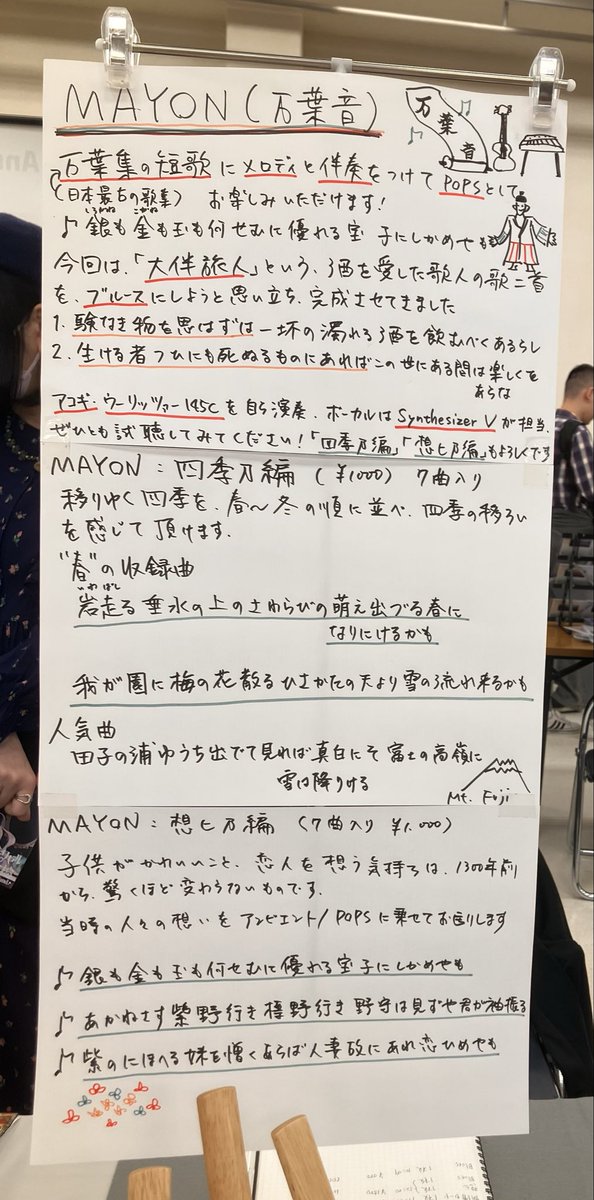 MAYON(万葉音)
万葉音
万葉集の短歌にメロディと伴奏をつけてPOPSとして
(日本最古の歌集) お楽しみいただけます!
しろかね こがね
♪銀も金も玉も何せむに優れる宝 子にしかめやも
今回は、「大伴旅人」という、酒を愛した歌人の歌二首
を、ブルースにしようと思い立ち、完成させてきました
1. 験なき物を思はずは一坏の濁れる酒を飲むべくあるらし
2. 生ける者つひにも死ぬるものにあればこの世にある間は楽しくを
あらな
アコギ・ウーリッツァー145Cを自ら演奏、ボーカルはSynthesizer Vが担当、
ぜひとも試聴してみてください!「四季乃編」「想ヒ乃編」もよろしくです
MAYON:四季乃編 (¥1000) 7曲入り
移りゆく四季を、春〜冬の順に並べ、四季の移ろい
を感じて頂けます.
"春"の収録曲
いわばし
岩走る垂水の上のさわらびの萌え出づる春に
なりにけるかも
我が園に梅の花散るひさかたの天より雪の流れ来るかも
人気曲
田子の浦ゆうち出でて見れば真白にそ富士の高嶺に
雪は降りける
Mt. Fuji
MAYON:想ヒ乃編 (7曲入り ¥1.000)
子供がかわいいこと、恋人を想う気持ちは、1300年前
から、驚くほど変わらないものです.
当時の人々の想いをアンビエント/POPSに乗せてお送りします
♪銀も金も玉も何せむに優れる宝子にしかめやも
♪あかねさす紫野行き標野行き野守は見ずや君が袖振る
♪紫のにほへる妹を憎くあらば人妻故にあれ恋ひめやも